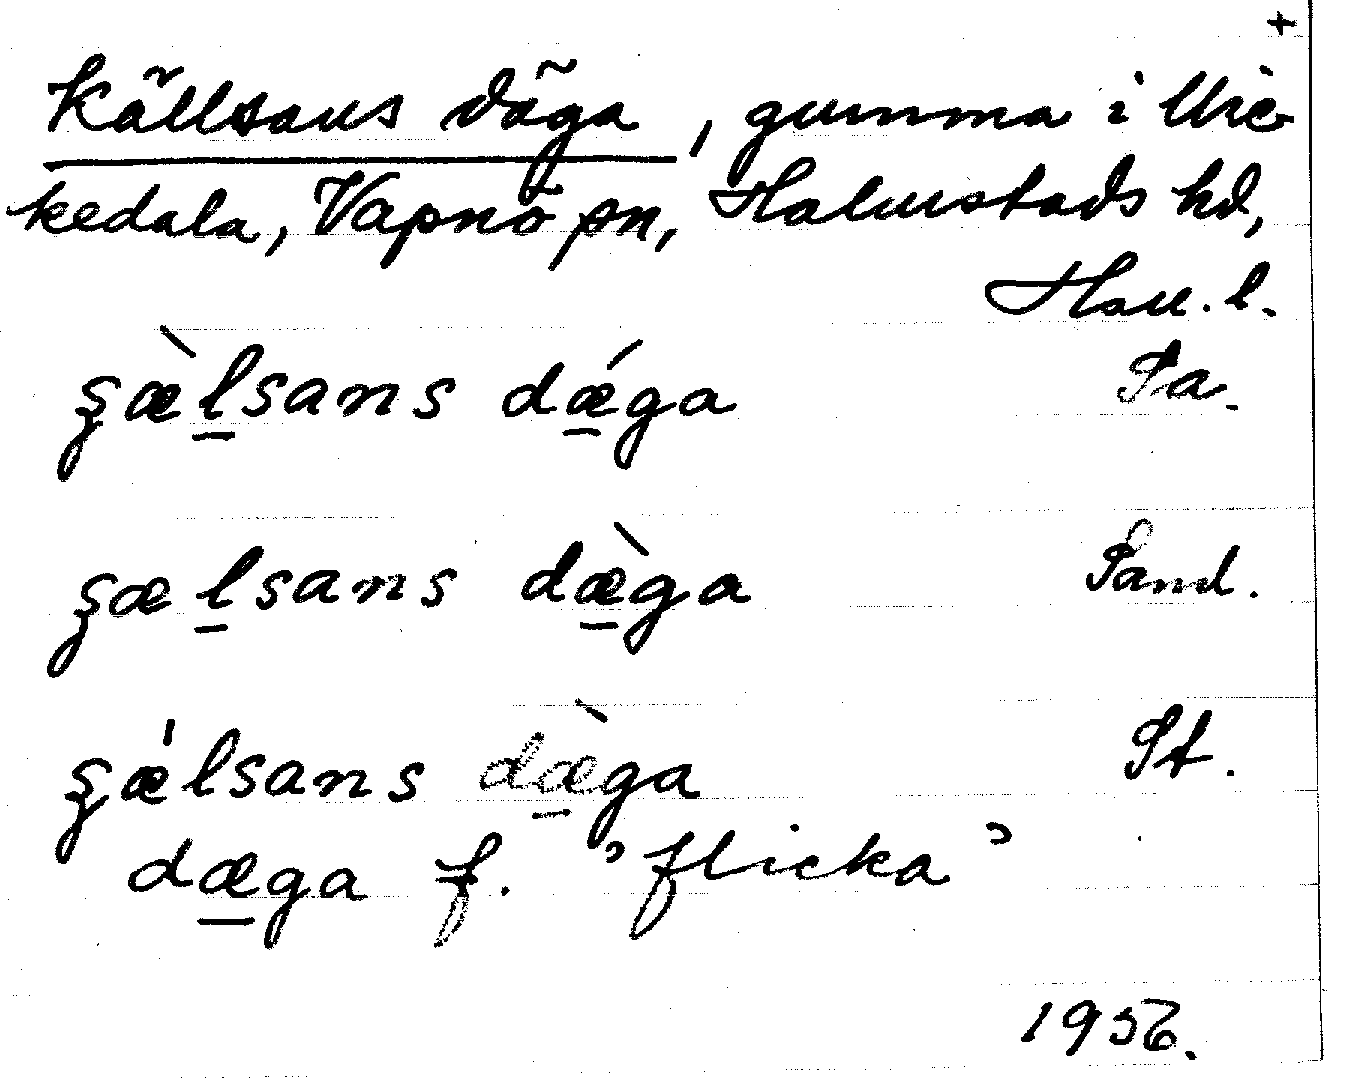 +
Källsans däga, gumma i Mic-
kedala, Vapnö sn, Halmstads hd,
Hall. l.
ʂæ̀l̲sans dǽ̲ga Sa.
ʂæl̲sans dæ̲̀ga Sand.
ʂǽlsans dæ̲̀ga St.
dæ̲ga f. "flicka"
1956.